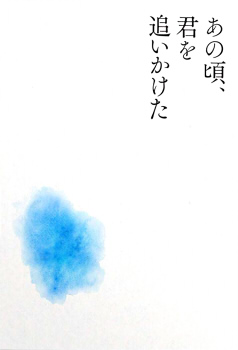 あの頃、
君を
追いかけた